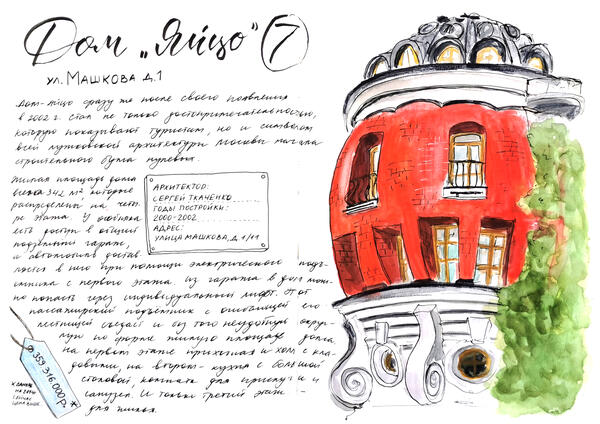 Дом „Яйцо“ 7
ул. Машкова д.1
Дом-яйцо сразу же после своего появления
в 2002 г. стал не только достопримечательностью,
которую показывают туристам, но и символом
всей лужковской архитектуры Москвы начала
строительного бума нулевых.
Жилая площадь дома
всего 342 м², которые
распределены на четы-
ре этажа. У особняка
есть доступ в общий
подземный гараж,
а автомобиль достав-
ляется в него при помощи электрического подъ-
емника с первого этажа. Из гаража в дом мож-
но попасть через индивидуальный лифт. Этот
пассажирский подъемник с опоясывающей его
лестницей съедает и без того неудобную округ-
лую по форме жилую площадь дома.
На первом этаже прихожая и холл с кла-
довыми, на втором - кухня с большой
столовой, комната для прислуги и
санузел. И только третий этаж -
для жилья.
АРХИТЕКТОР:
СЕРГЕЙ ТКАЧЕНКО
ГОДЫ ПОСТРОЙКИ:
2000-2002
АДРЕС:
УЛИЦА МАШКОВА, Д. 1/11
359 316 000 р. *